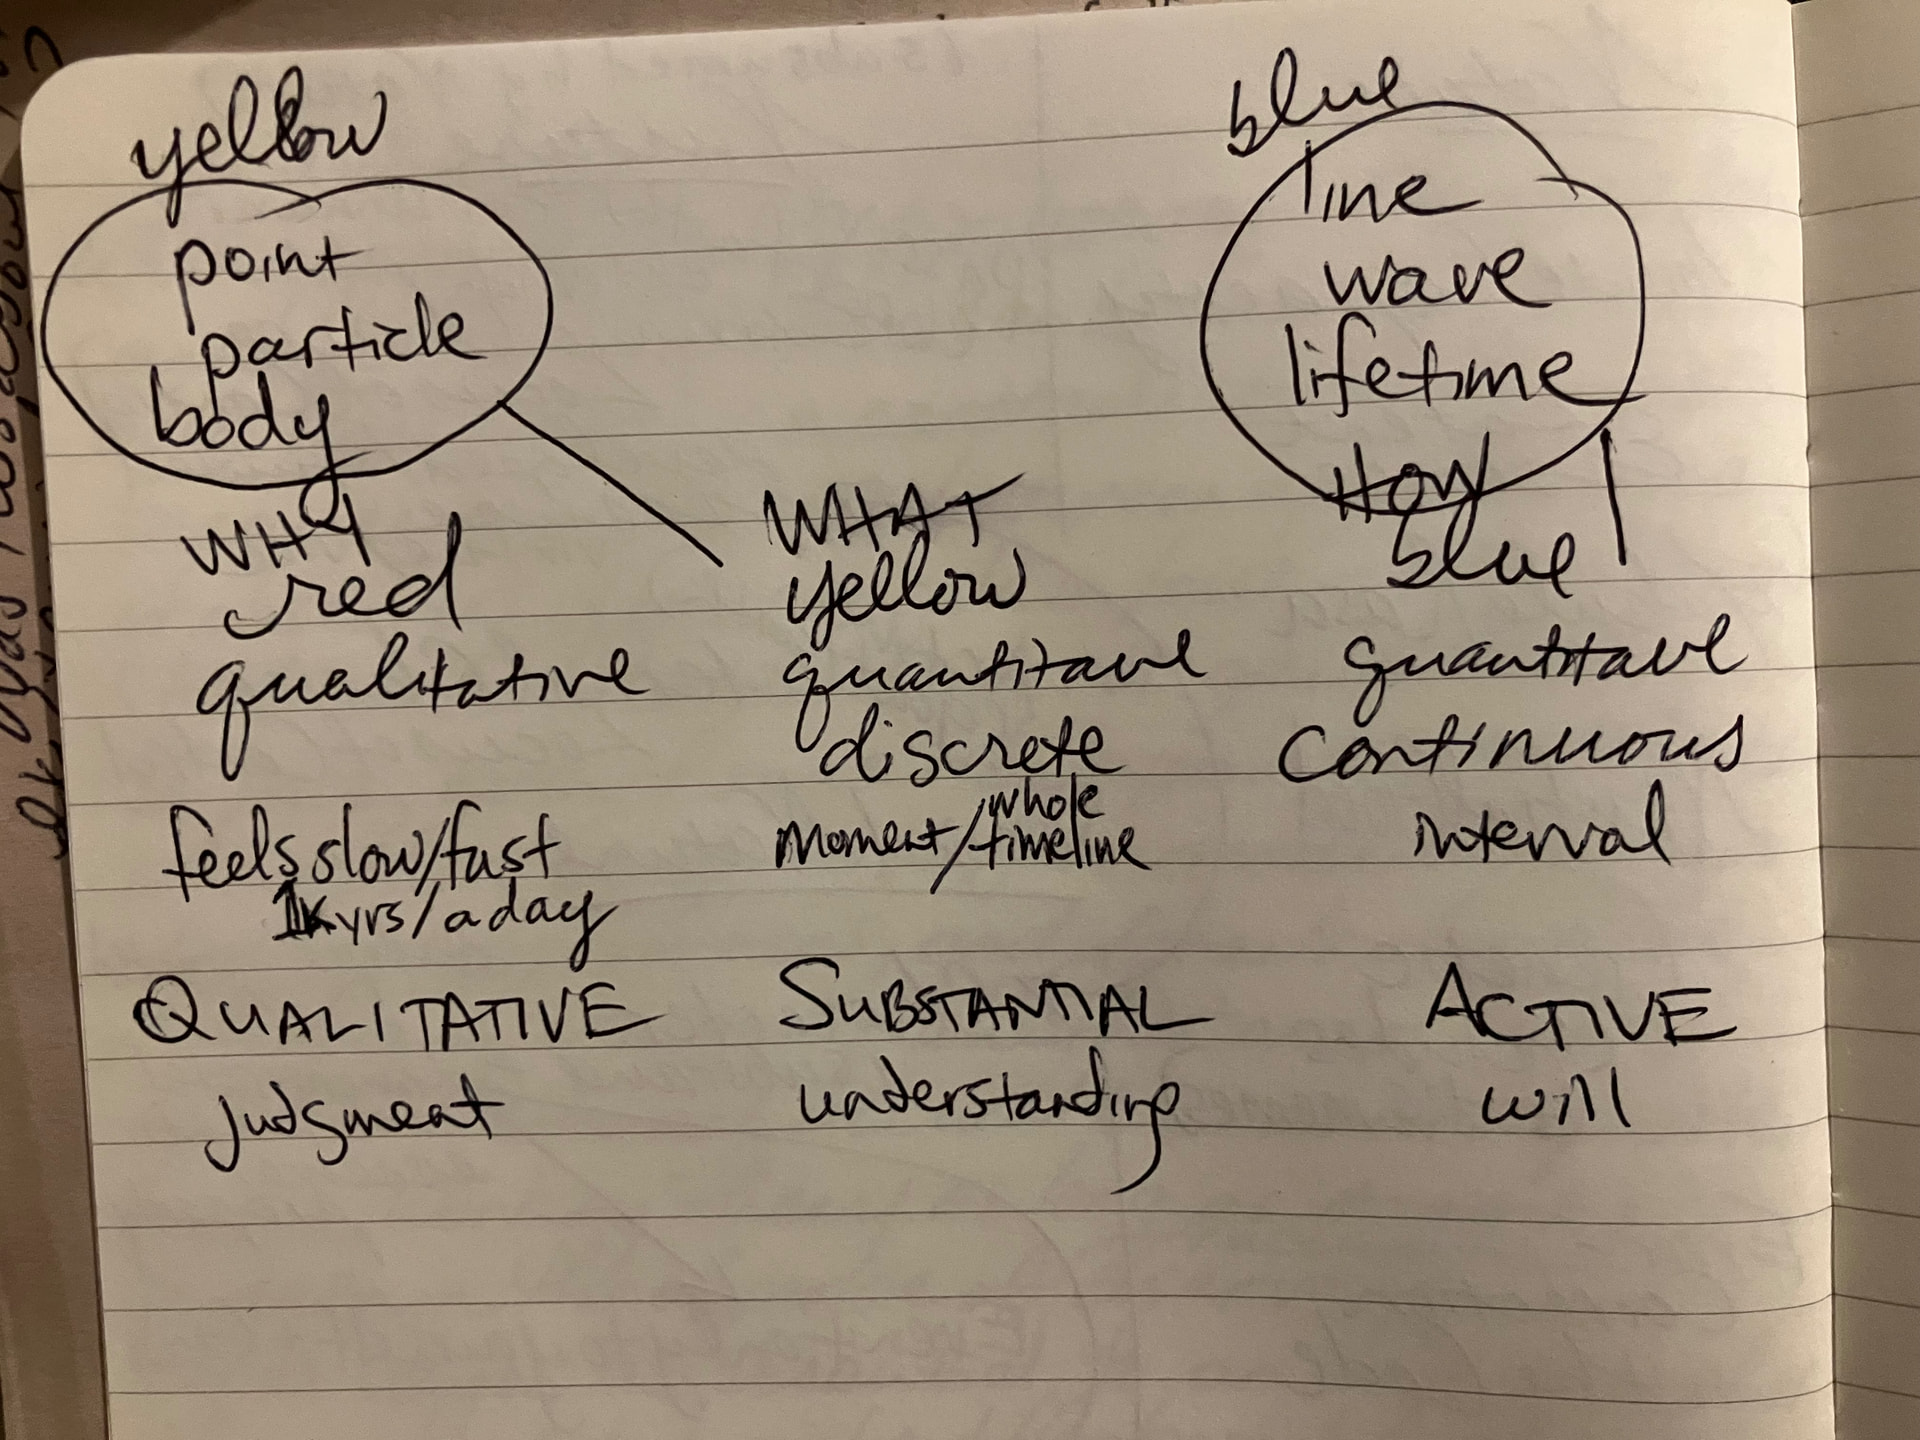 yellow
point
particle
body
blue
line
wave
lifetime
WHY WHAT HOW
red yellow blue
qualitative quantitave quantitave
discrete continuous
feels slow/fast moment/whole timeline interval
1K yrs/a day
QUALITATIVE SUBSTANTIAL ACTIVE
judgment understanding will